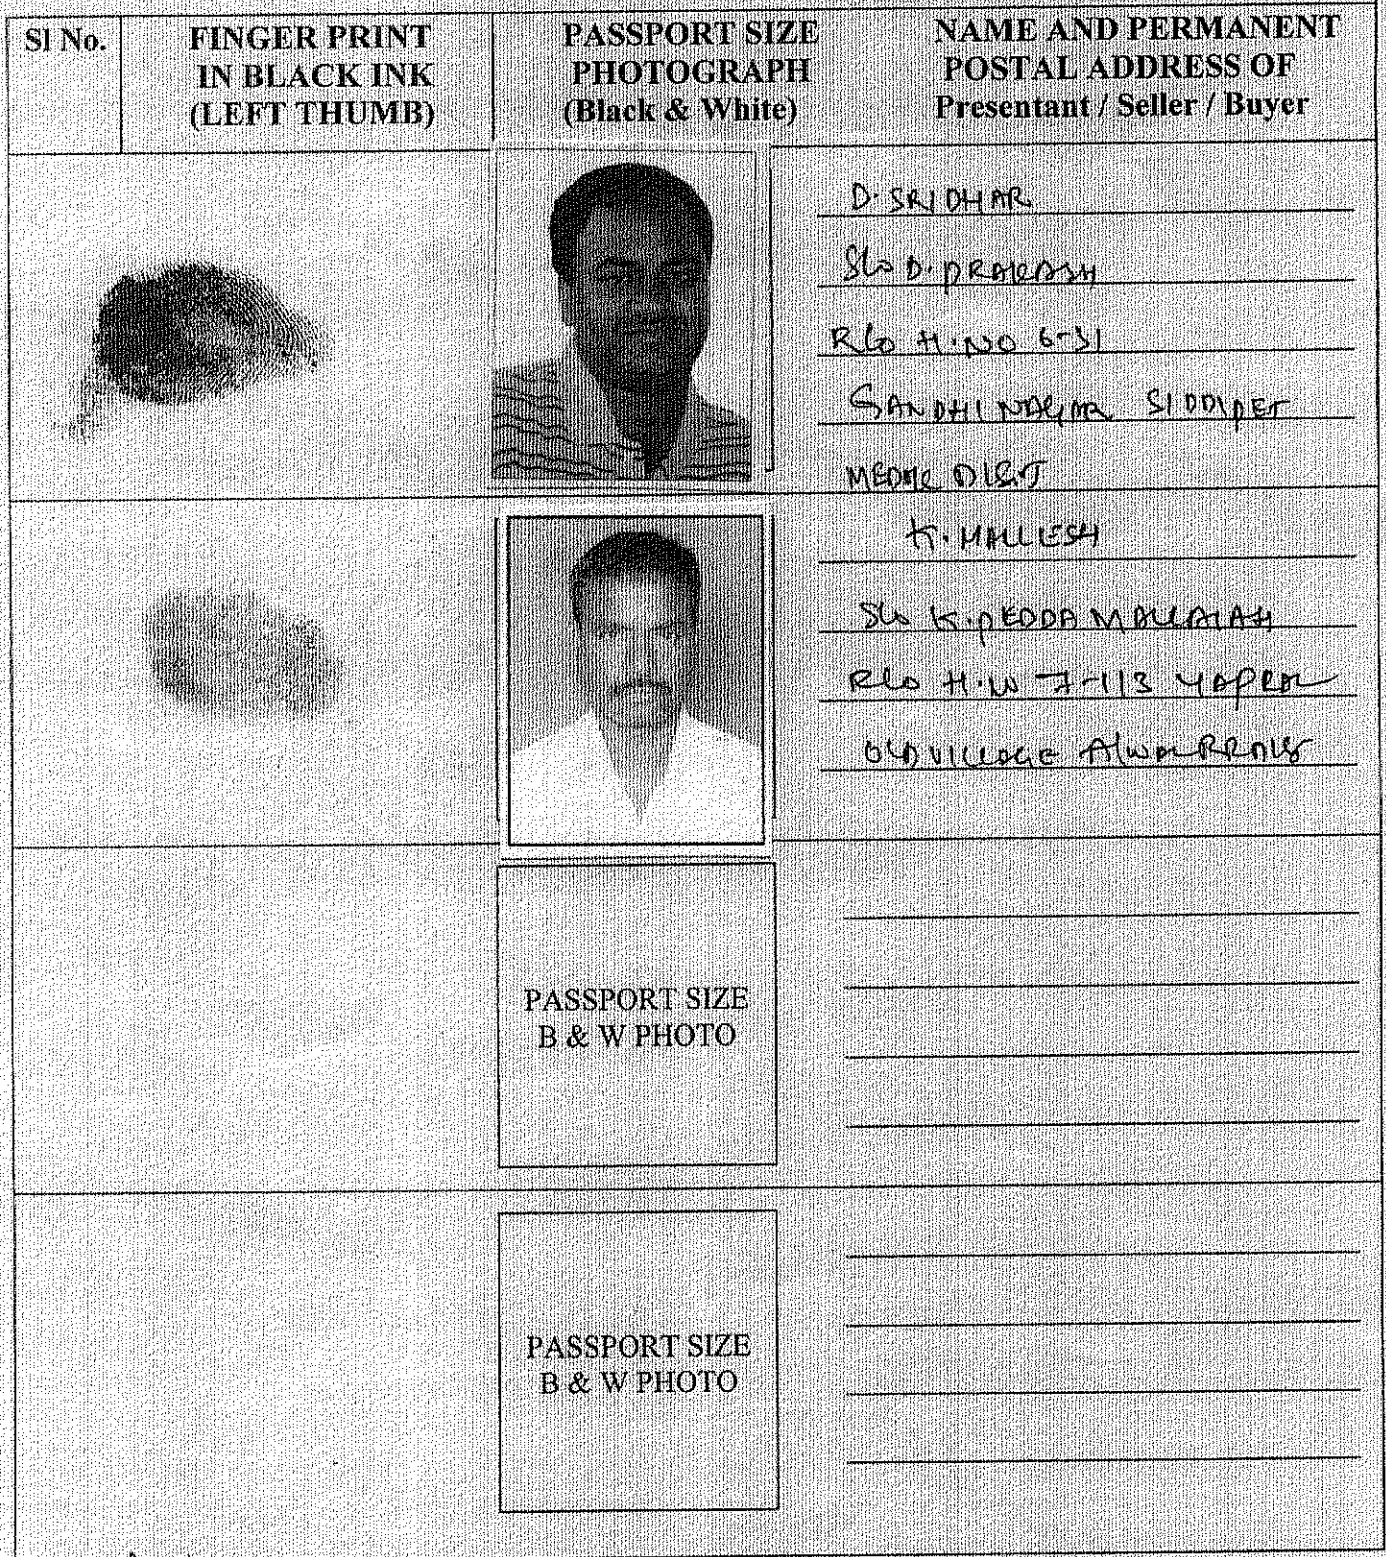 Sl No.
FINGER PRINT
IN BLACK INK
(LEFT THUMB)
PASSPORT SIZE
PHOTOGRAPH
(Black & White)
NAME AND PERMANENT
POSTAL ADDRESS OF
Presentant / Seller / Buyer
D. SRIDHAR
S/o D. PRAKASH
R/o H.NO 6-31
GANDHI NAGAR SIDDIPET
MEDAK DIST
K. MALLESH
S/o K. PEDDA MALLAIAH
R/o H.NO 7-113 YAPRAL
OLD VILLAGE Alwal
PASSPORT SIZE
B & W PHOTO
PASSPORT SIZE
B & W PHOTO